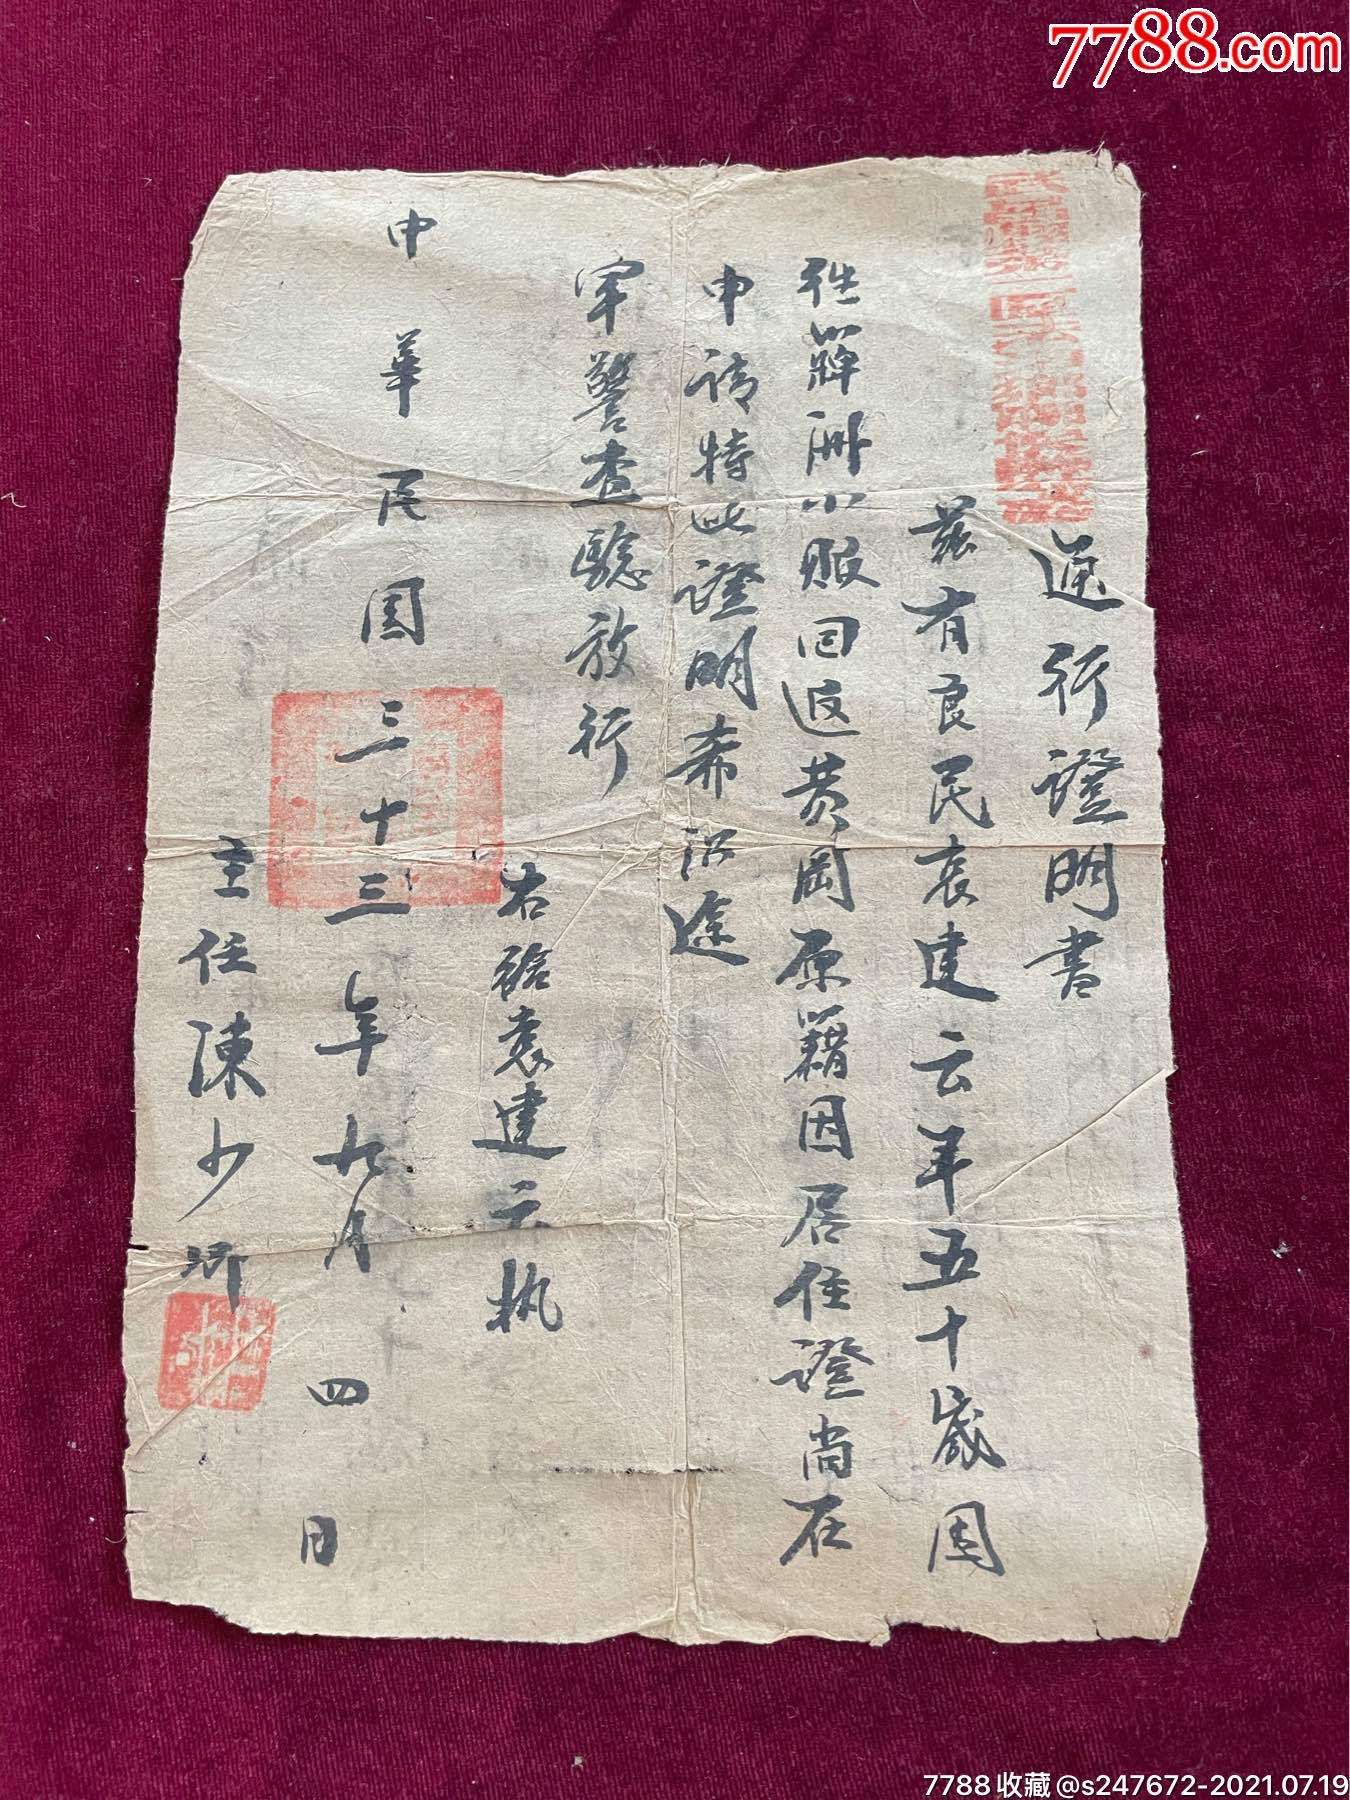 7788.com
通行證明書
茲有良民袁建云年五十歲因
往簰洲小販回返黄岡原籍因居住證尚在
申请特此證明希沿途
军警查驗放行
右給袁建云执
中華民国三十三年九月四日
主任陳少卿
7788收藏@s247672-2021.07.19